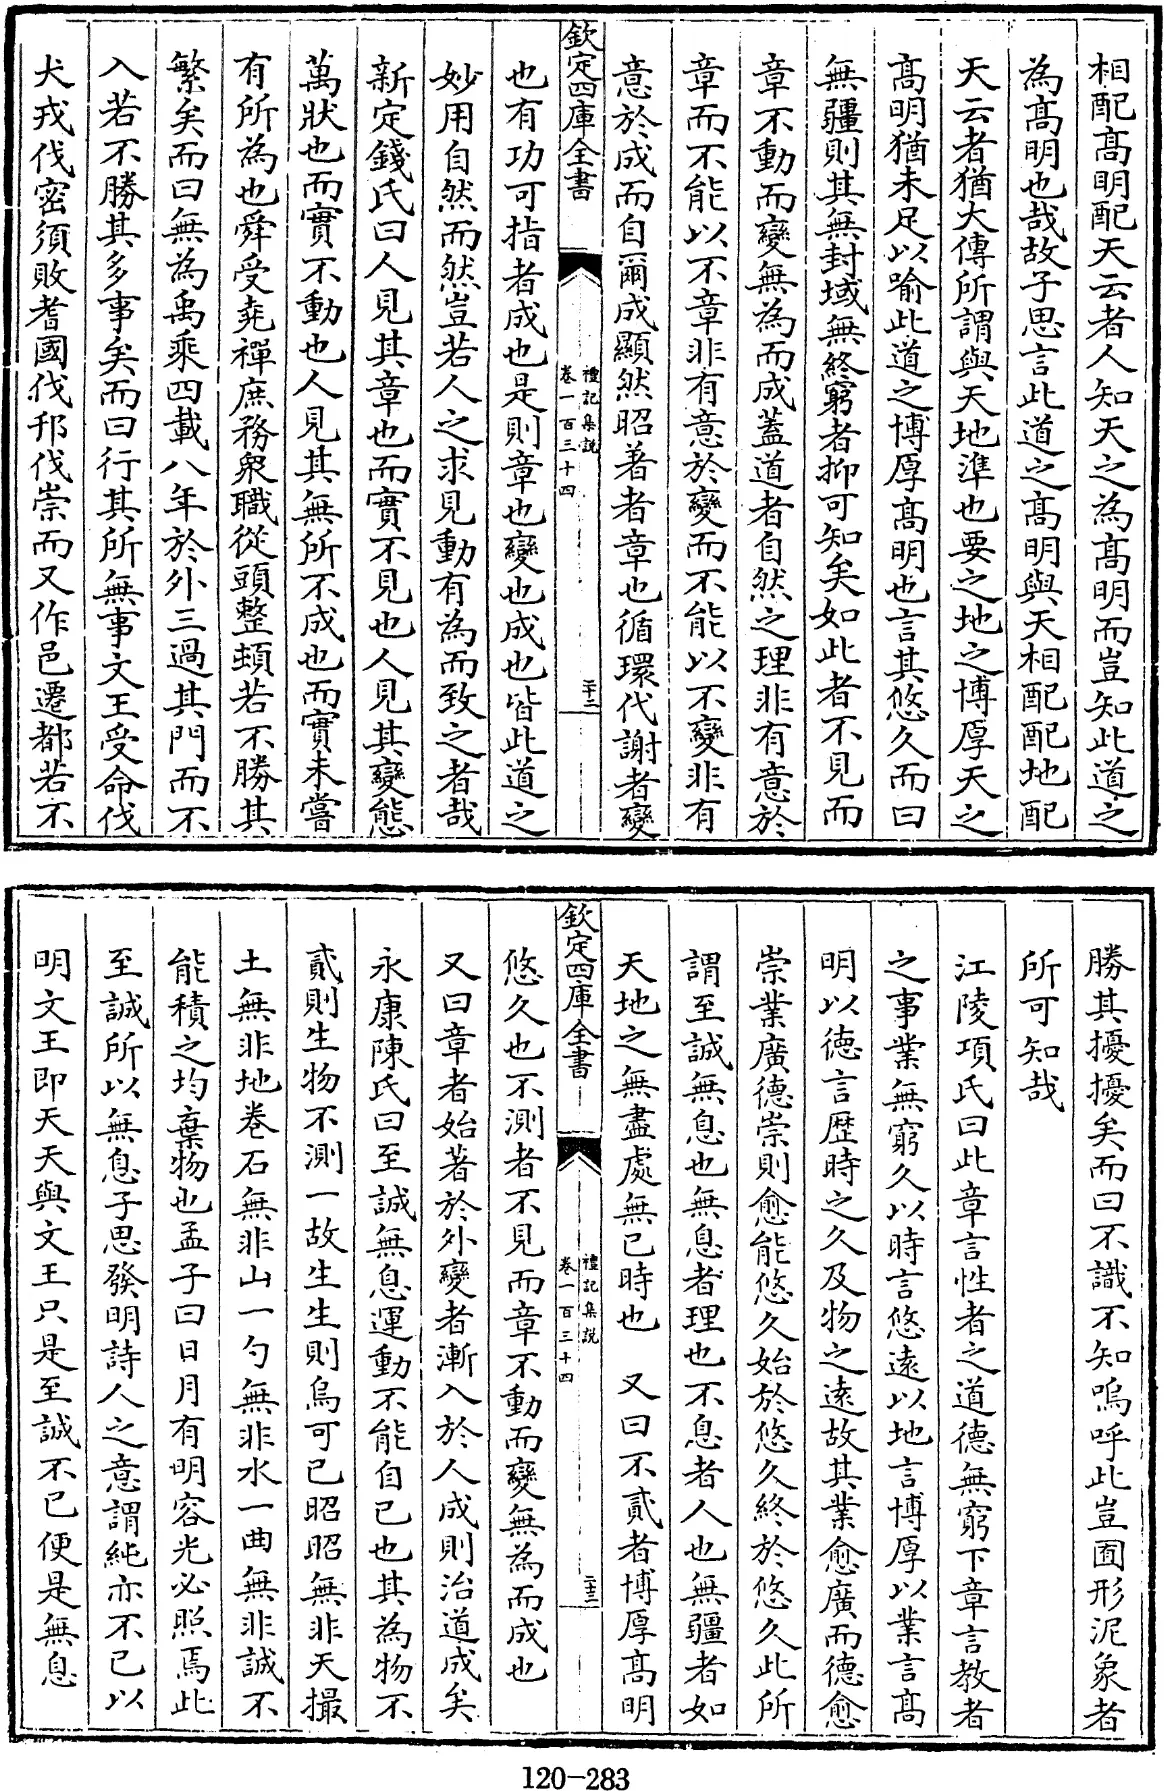 相配髙明配天云者人知天之為髙明而豈知此道之
為髙明也哉故子思言此道之髙明與天相配配地配
天云者猶大傳所謂與天地準也要之地之博厚天之
髙明猶未足以喻此道之博厚髙明也言其悠久而曰
無疆則其無封域無終窮者抑可知矣如此者不見而
章不動而變無為而成蓋道者自然之理非有意於
章而不能以不章非有意於變而不能以不變非有
意於成而自爾成顯然昭著者章也循環代謝者變
欽定四庫全書
禮記集說
卷一百三十四
二十二
也有功可指者成也是則章也變也成也皆此道之
妙用自然而然豈若人之求見動有為而致之者哉
新定錢氏曰人見其章也而實不見也人見其變態
萬狀也而實不動也人見其無所不成也而實未嘗
有所為也舜受堯禪庶務衆職從頭整頓若不勝其
繁矣而曰無為禹乘四載八年於外三過其門而不
入若不勝其多事矣而曰行其所無事文王受命伐
犬戎伐密須敗耆國伐邘伐崇而又作邑遷都若不
勝其擾擾矣而曰不識不知嗚呼此豈囿形泥象者
所可知哉
江陵項氏曰此章言性者之道德無窮下章言教者
之事業無窮久以時言悠遠以地言博厚以業言髙
明以德言歴時之久及物之遠故其業愈廣而德愈
崇業廣德崇則愈能悠久始於悠久終於悠久此所
謂至誠無息也無息者理也不息者人也無疆者如
天地之無盡處無已時也 又曰不貳者博厚髙明
欽定四庫全書
禮記集說
卷一百三十四
二十三
悠久也不測者不見而章不動而變無為而成也
又曰章者始著於外變者漸入於人成則治道成矣
永康陳氏曰至誠無息運動不能自已也其為物不
貳則生物不測一故生生則烏可已昭昭無非天撮
土無非地卷石無非山一勺無非水一曲無非誠不
能積之均棄物也孟子曰日月有明容光必照焉此
至誠所以無息子思發明詩人之意謂純亦不已以
明文王即天天與文王只是至誠不已便是無息
120-283